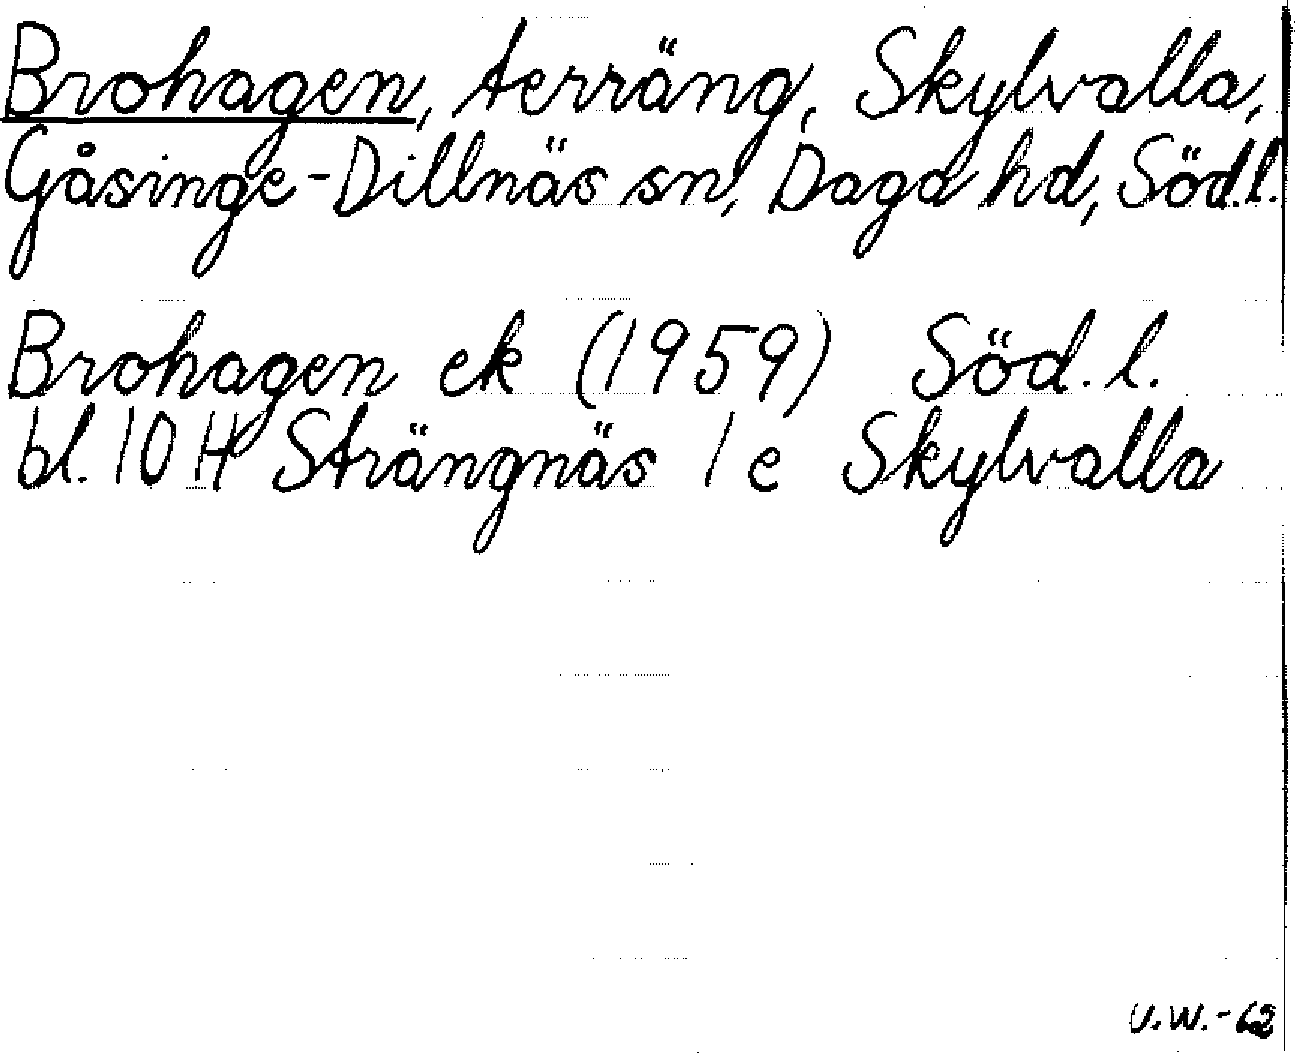 Brohagen, terräng, Skylvalla,
Gåsinge-Dillnäs sn, Daga hd, Söd.l.
Brohagen ek (1959) Söd.l.
bl. 10 H Strängnäs 1 e Skylvalla
U.W.-62